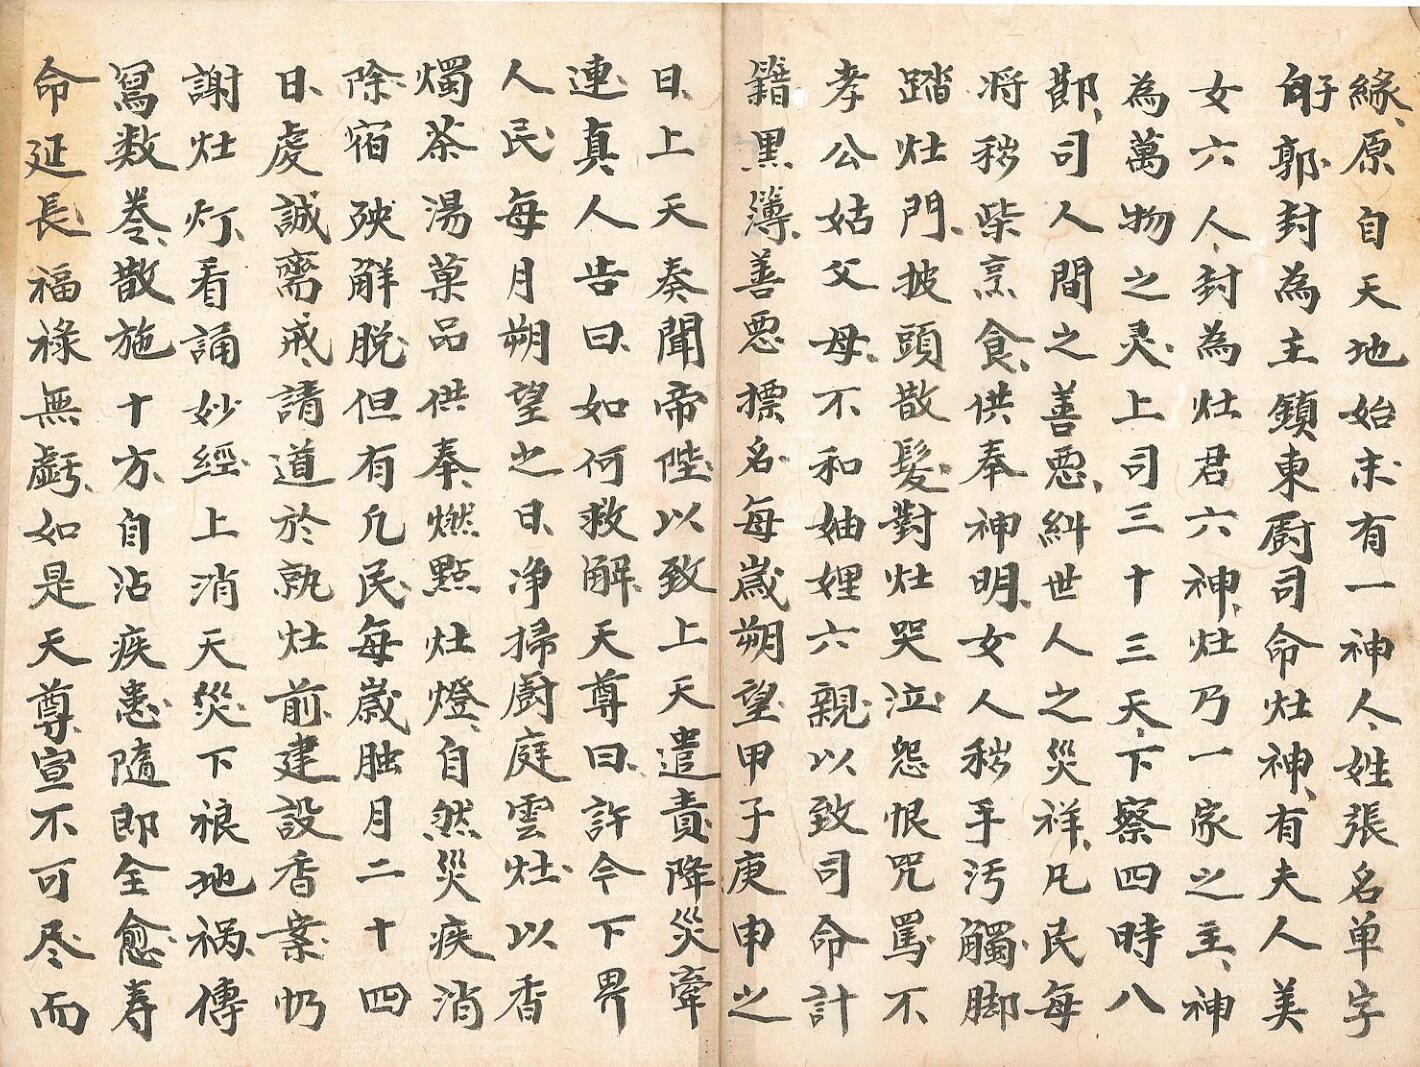 緣、原自天地始末有一神人、姓張名单字
自子郭、封為主鎮東厨司命灶神、有夫人美
女六人、封為灶君六神、灶乃一家之主、神
為萬物之灵、上司三十三天、下察四時八
節、司人間之善恶、糾世人之災祥、凡民每
将秽柴烹食、供奉神明、女人秽手污觸、脚
踏灶門、披頭散髮、對灶哭泣怨恨咒罵、不
孝公姑父母、不和妯娌六親、以致司命計
籍黒簿、善恶標名、每歲朔望甲子庚申之
日、上天奏聞帝陛、以致上天遣責、降災牽
連、真人告曰、如何救解、天尊曰、許今下界
人民、每月朔望之日、净掃厨庭雲灶、以香
燭茶湯菓品供奉、燃點灶燈、自然災疾消
除、宿殃解脱、但有凡民、每歲腊月二十四
日、虔誠齋戒、請道於執灶前、建設香案、忉
謝灶灯、看誦妙經、上消天災、下禳地祸、傳
寫数卷、散施十方、自沾疾患、隨即全愈、寿
命延長、福祿無虧、如是天尊、宣不可尽、而